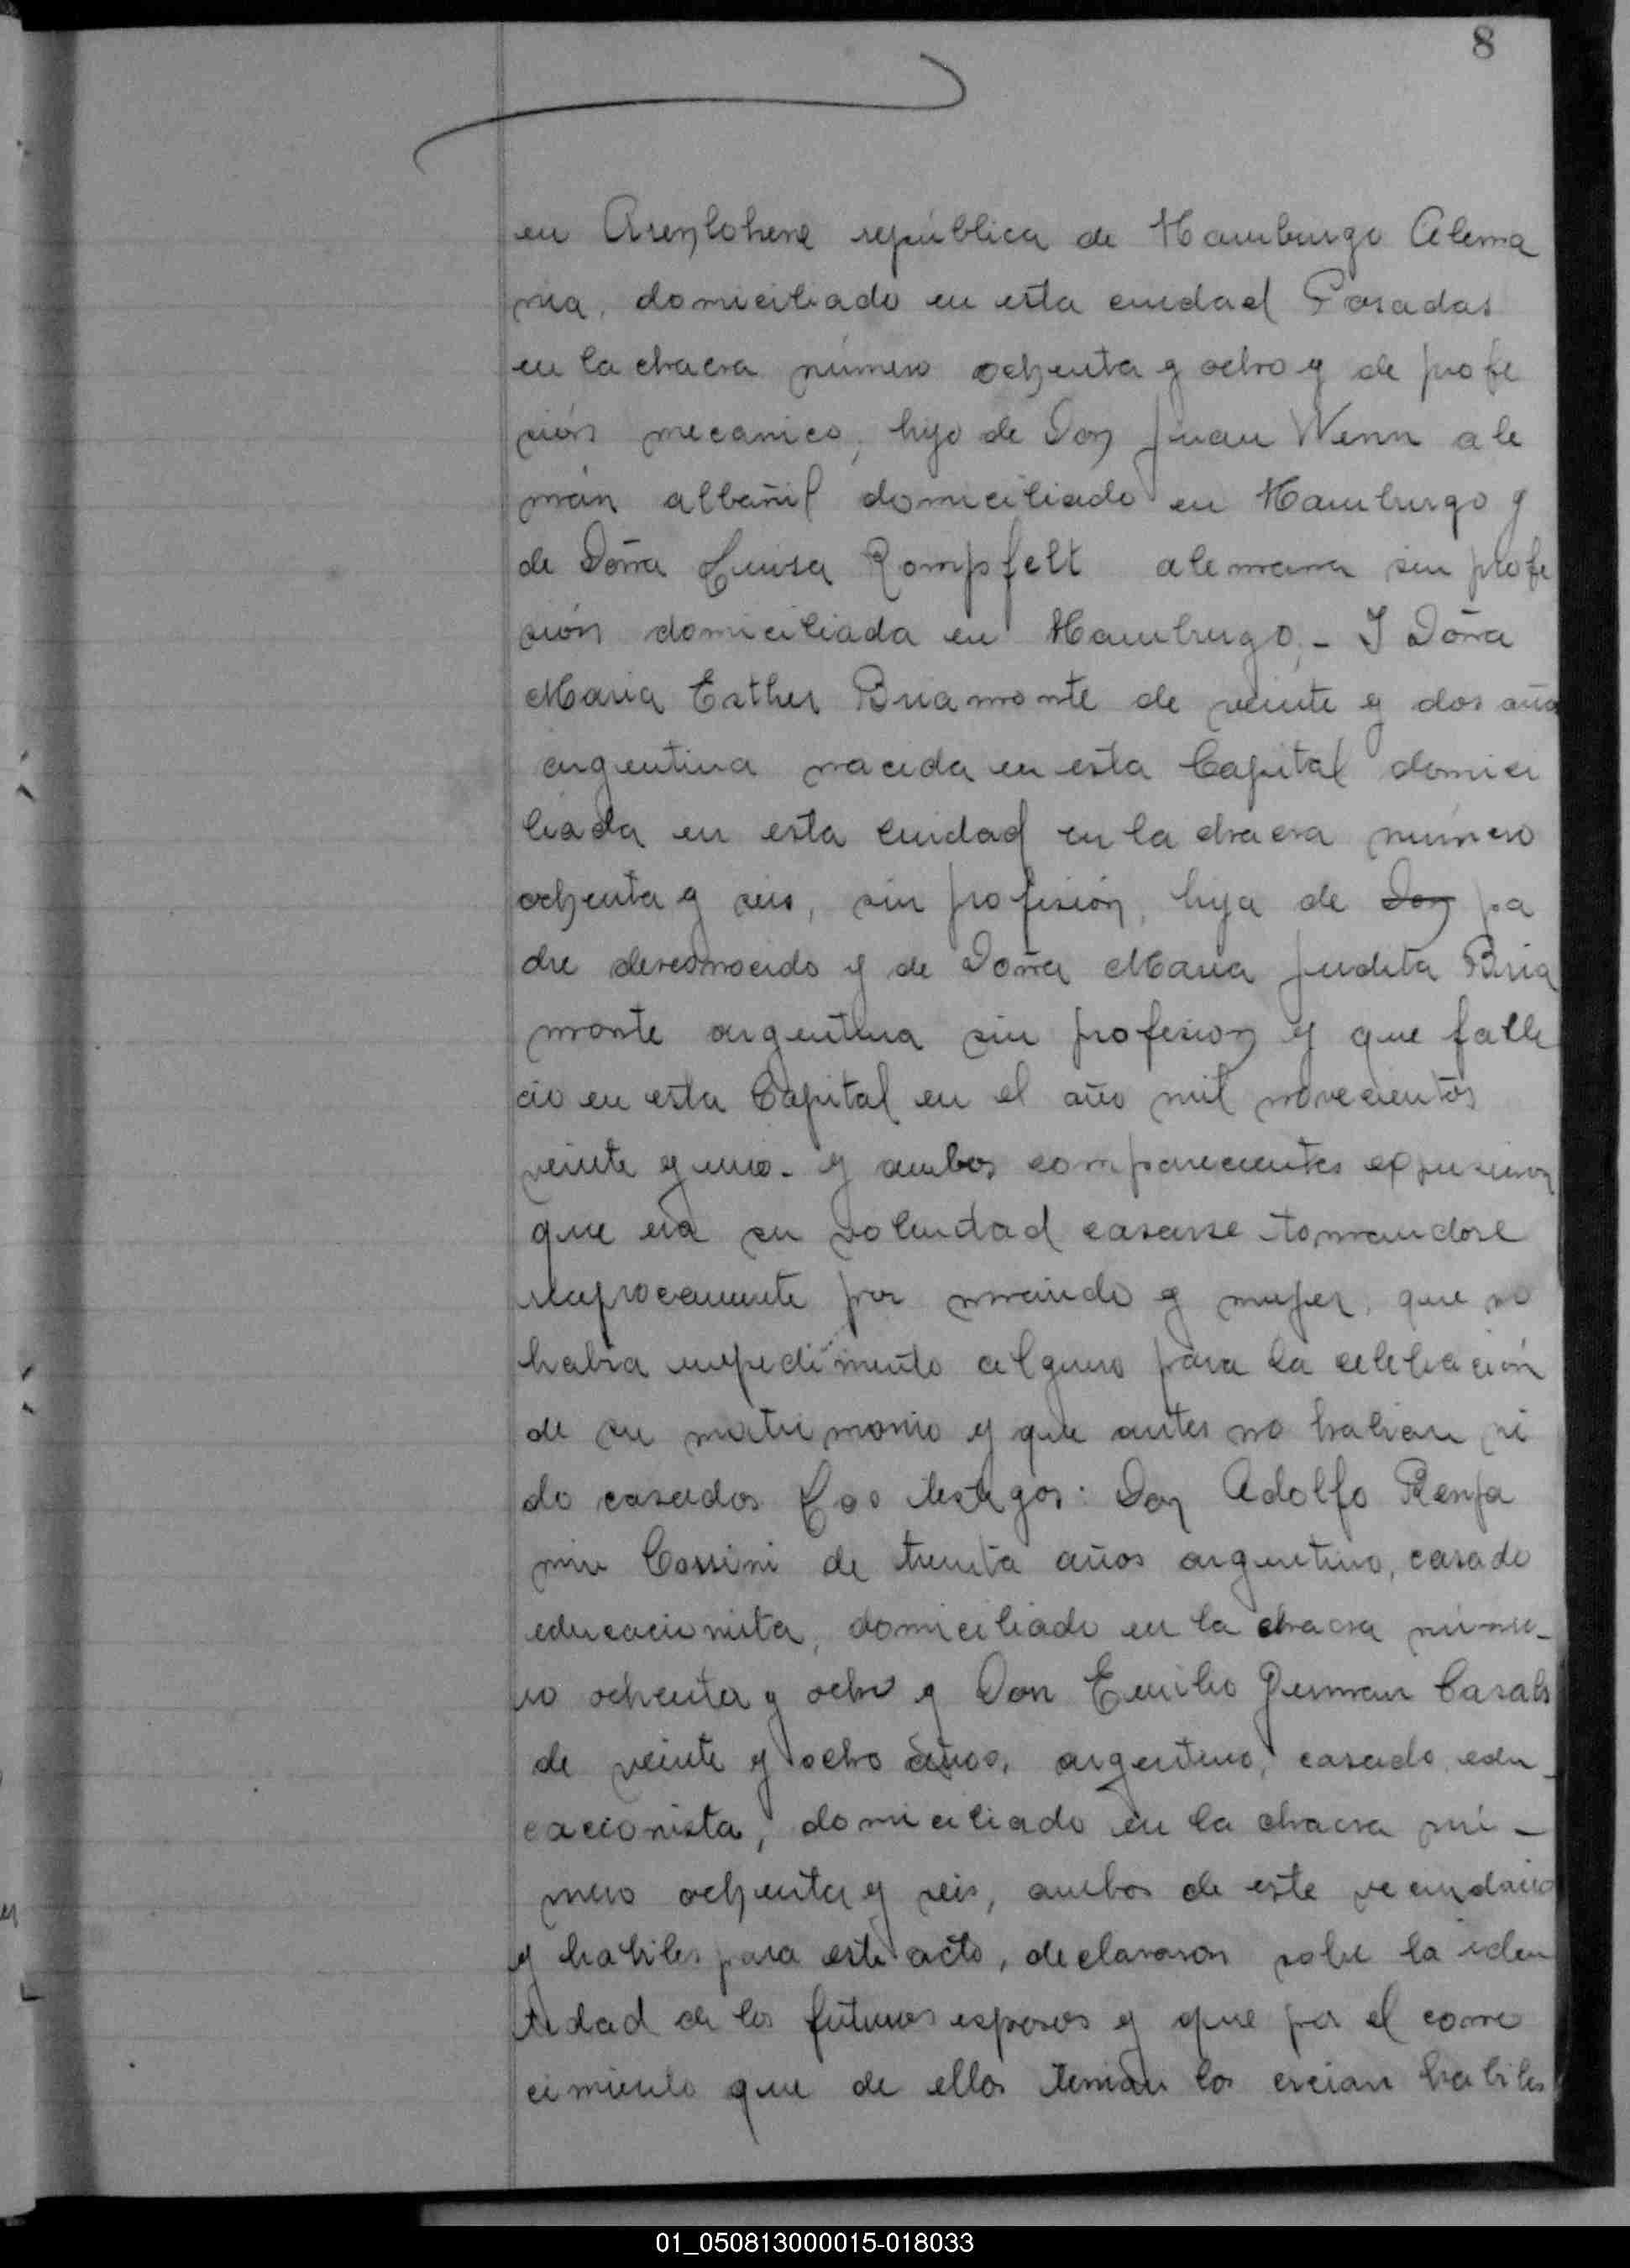 8
en Arenlohene república de Hamburgo Alema
nia, domiciliado en esta ciudad Posadas
en la chacra número ochenta y ocho y de profe
sión mecanico, hijo de Don Juan Wenn ale
mán albañil domiciliado en Hamburgo y
de Doña Luisa Rompfelt alemana sin profe
sión domiciliada en Hamburgo,- Y Doña
Maria Esther Briamonte de veinte y dos años
argentina nacida en esta Capital domici
liada en esta ciudad en la chacra número
ochenta y seis, sin profesión, hija de Don pa
dre desconocido y de Doña Maria Judita Bria
monte argentina sin profesion y que falle
cio en esta Capital en el año mil novecientos
veinte y uno.- y ambos comparecientes expusieron
que era su voluntad casarse tomandose
reciprocamente por marido y mujer, que no
habia impedimento alguno para la celebración
de su matrimonio y que antes no habian si
do casados Los testigos: Don Adolfo Benja
min Cossini de treinta años argentino, casado
educacionista, domiciliado en la chacra núme-
ro ochenta y ocho y Don Emilio German Casals
de veinte y ocho años, argentino, casado, edu-
cacionista, domiciliado en la chacra nú-
mero ochenta y seis, ambos de este vecindario
y habiles para este acto, declararon sobre la iden
tidad de los futuros esposos y que por el cono
cimiento que de ellos tenian los creian habiles
01_050813000015-018033